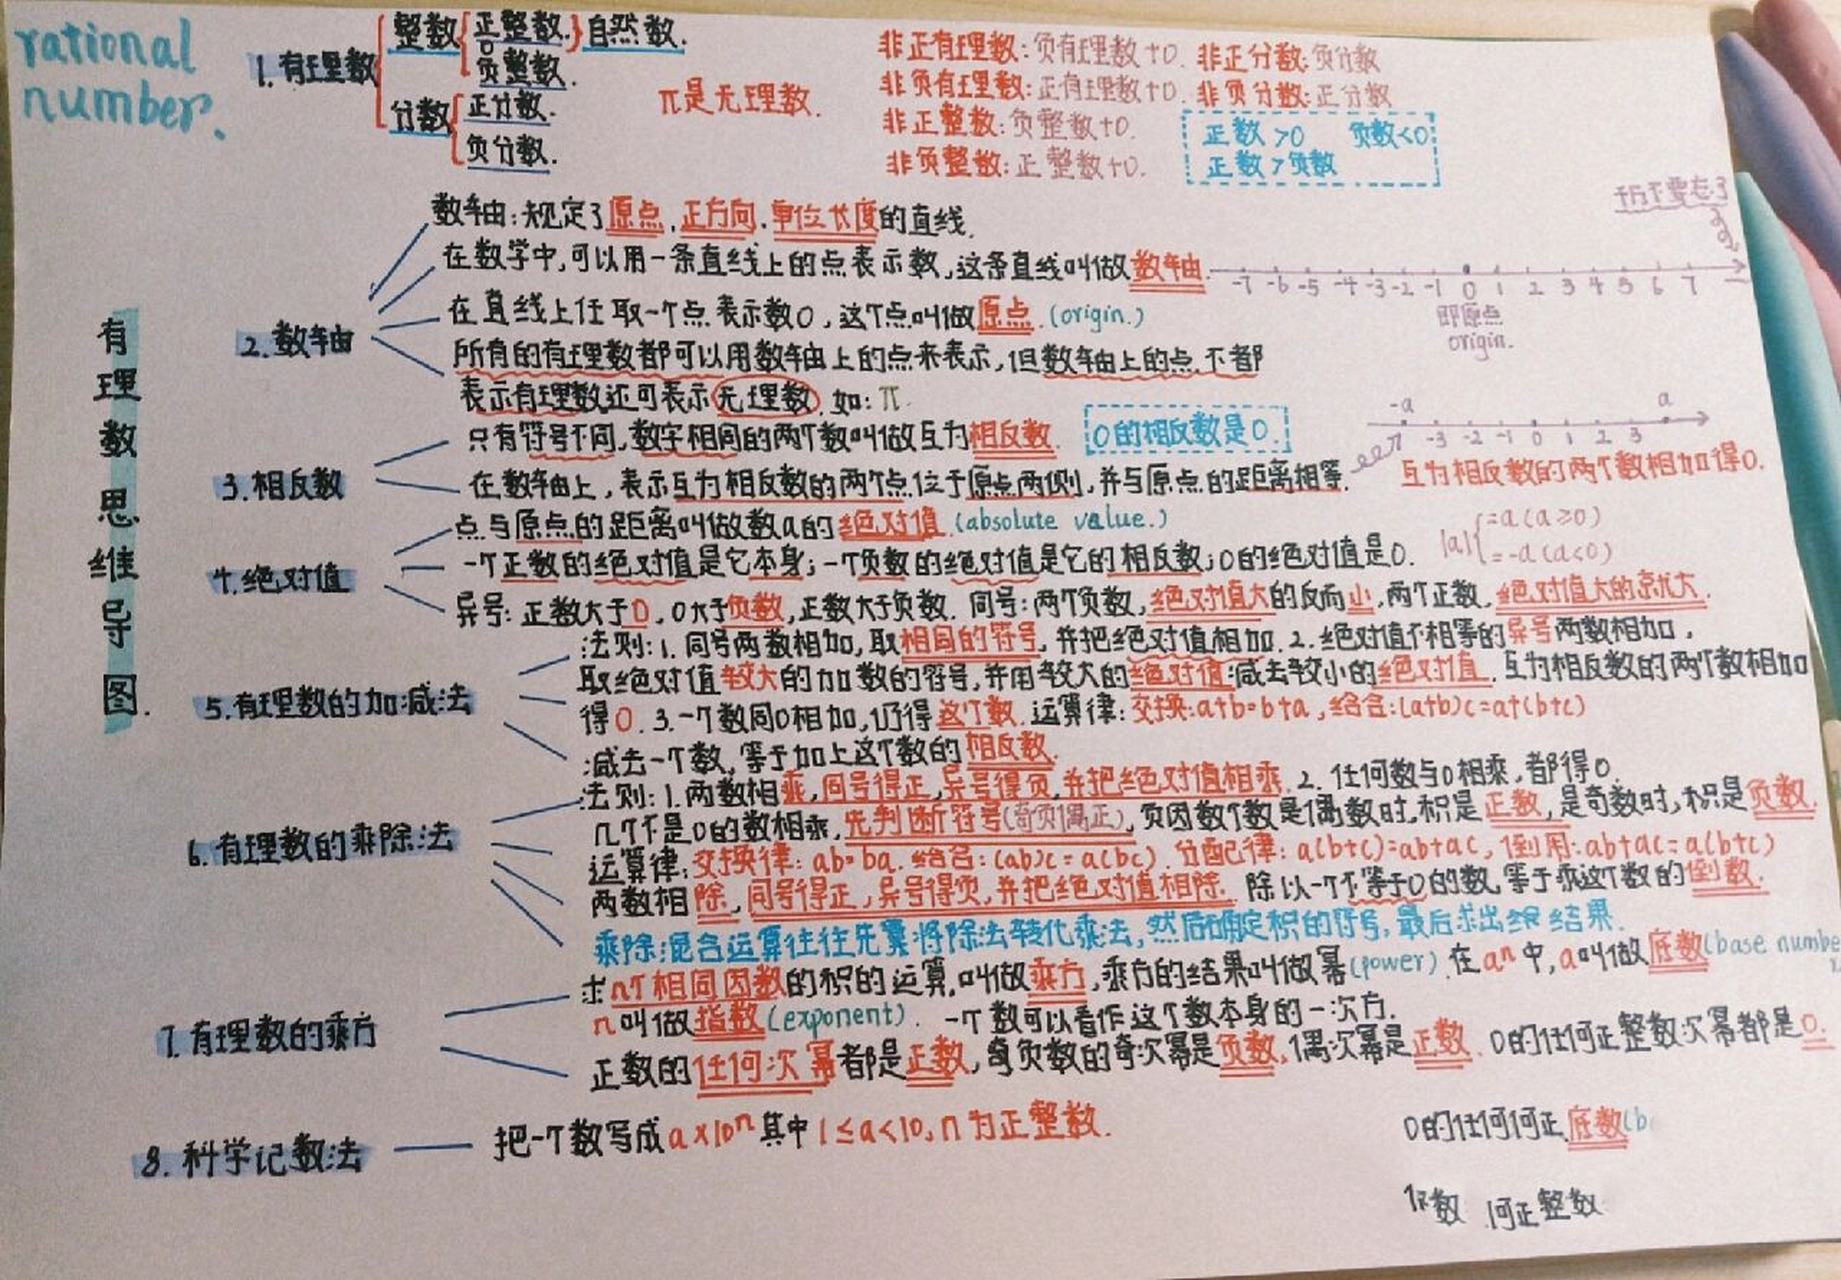 rational
number.
有理数思维导图.
1.有理数
整数
正整数.
0
负整数.
自然数.
分数
正分数.
负分数.
π是无理数.
非正有理数:负有理数+0.
非负有理数:正有理数+0.
非正整数:负整数+0.
非负整数:正整数+0.
非正分数:负分数
非负分数:正分数
正数>0 负数<0
正数>负数
2.数轴
数轴:规定了原点,正方向,单位长度的直线.
在数学中,可以用一条直线上的点表示数,这条直线叫做数轴.
千万不要忘了
-7 -6 -5 -4 -3 -2 -1 0 1 2 3 4 5 6 7
即原点
origin.
在直线上任取一个点表示数0,这个点叫做原点.(origin.)
所有的有理数都可以用数轴上的点来表示,但数轴上的点不都
表示有理数还可表示无理数.如:π
3.相反数
只有符号不同,数字相同的两个数叫做互为相反数.
0的相反数是0.
-a a
-3 -2 -1 0 1 2 3
在数轴上,表示互为相反数的两个点位于原点两侧,并与原点的距离相等.
互为相反数的两个数相加得0.
4.绝对值
点与原点的距离叫做数a的绝对值.(absolute value.)
一个正数的绝对值是它本身;一个负数的绝对值是它的相反数;0的绝对值是0.
|a|
=a(a≥0)
=-a(a<0)
异号:正数大于0,0大于负数,正数大于负数.同号:两个负数,绝对值大的反而小,两个正数,绝对值大的就大.
5.有理数的加减法
法则:1.同号两数相加,取相同的符号,并把绝对值相加.2.绝对值不相等的异号两数相加,
取绝对值较大的加数的符号,并用较大的绝对值减去较小的绝对值.互为相反数的两个数相加
得0.3.一个数同0相加,仍得这个数.运算律:交换:a+b=b+a,结合:(a+b)c=a+(b+c)
减去一个数,等于加上这个数的相反数.
6.有理数的乘除法
法则:1.两数相乘,同号得正,异号得负,并把绝对值相乘.2.任何数与0相乘,都得0.
几个不是0的数相乘,先判断符号(奇负偶正),负因数个数是偶数时,积是正数,是奇数时,积是负数.
运算律:交换律:ab=ba.结合:(ab)c=a(bc).分配律:a(b+c)=ab+ac,倒用:ab+ac=a(b+c)
两数相除,同号得正,异号得负,并把绝对值相除. 除以一个不等于0的数,等于乘这个数的倒数.
乘除混合运算往往先将除法转化乘法,然后确定积的符号,最后求出结果.
7.有理数的乘方
求n个相同因数的积的运算,叫做乘方,乘方的结果叫做幂(power).在aⁿ中,a叫做底数(base numbe
n叫做指数(exponent). 一个数可以看作这个数本身的一次方.
正数的任何次幂都是正数,奇负数的奇次幂是负数,偶次幂是正数.0的任何正整数次幂都是0.
8.科学记数法
把一个数写成a×10ⁿ其中1≤a<10,n为正整数.
0的任何何正底数(b
数 何正整数